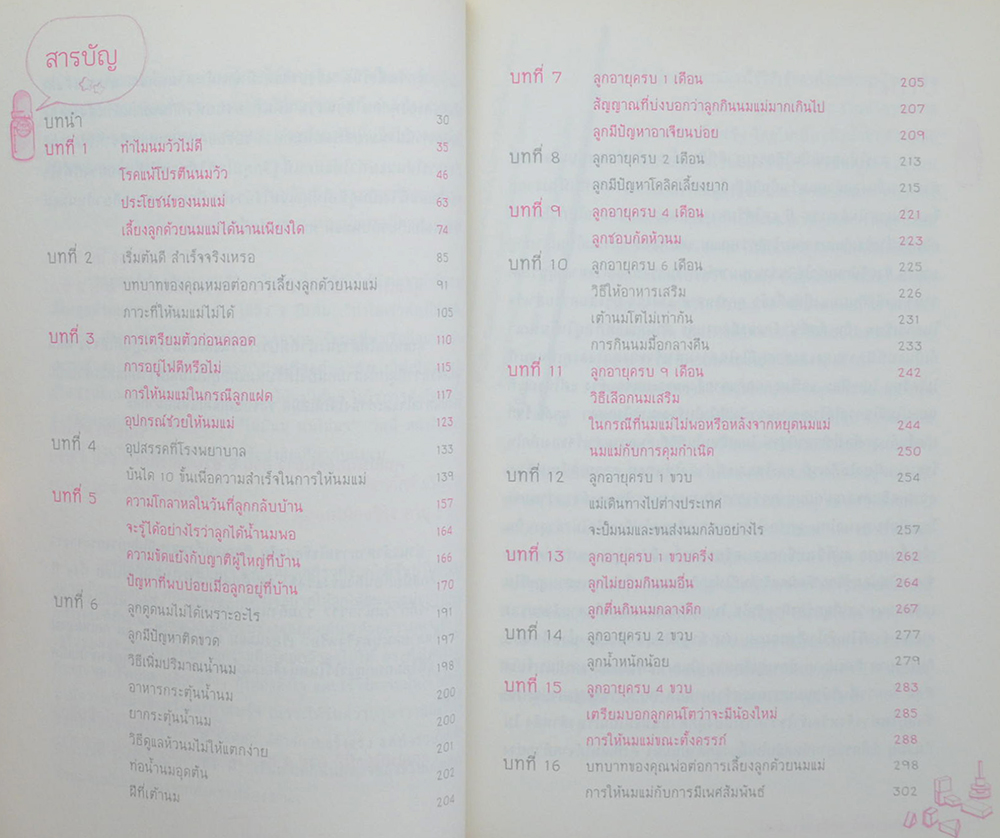 สารบัญ
บทนำ 30
บทที่ 1 ทำไมนมวัวไม่ดี 35
โรคแพ้โปรตีนนมวัว 46
ประโยชน์ของนมแม่ 63
เลี้ยงลูกด้วยนมแม่ได้นานเพียงใด 74
บทที่ 2 เริ่มต้นดี สำเร็จจริงเหรอ 85
บทบาทของคุณหมอต่อการเลี้ยงลูกด้วยนมแม่ 91
ภาวะที่ให้นมแม่ไม่ได้ 105
บทที่ 3 การเตรียมตัวก่อนคลอด 110
การอยู่ไฟดีหรือไม่ 115
การให้นมแม่ในกรณีลูกแฝด 117
อุปกรณ์ช่วยให้นมแม่ 123
บทที่ 4 อุปสรรคที่โรงพยาบาล 133
บันได 10 ขั้นเพื่อความสำเร็จในการให้นมแม่ 139
บทที่ 5 ความโกลาหลในวันที่ลูกกลับบ้าน 157
จะรู้ได้อย่างไรว่าลูกได้น้ำนมพอ 164
ความขัดแย้งกับญาติผู้ใหญ่ที่บ้าน 166
ปัญหาที่พบบ่อยเมื่อลูกอยู่ที่บ้าน 170
บทที่ 6 ลูกดูดนมไม่ได้เพราะอะไร 191
ลูกมีปัญหาติดขวด 197
วิธีเพิ่มปริมาณน้ำนม 198
อาหารกระตุ้นน้ำนม 200
ยากระตุ้นน้ำนม 200
วิธีดูแลหัวนมไม่ให้แตกง่าย 201
ท่อน้ำนมอุดตัน 202
ฝีที่เต้านม 204
บทที่ 7 ลูกอายุครบ 1 เดือน 205
สัญญาณที่บ่งบอกว่าลูกกินนมแม่มากเกินไป 207
ลูกมีปัญหาอาเจียนบ่อย 209
บทที่ 8 ลูกอายุครบ 2 เดือน 213
ลูกมีปัญหาโคลิคเลี้ยงยาก 215
บทที่ 9 ลูกอายุครบ 4 เดือน 221
ลูกชอบกัดหัวนม 223
บทที่ 10 ลูกอายุครบ 6 เดือน 225
วิธีให้อาหารเสริม 226
เต้านมโตไม่เท่ากัน 231
การกินนมมื้อกลางคืน 233
บทที่ 11 ลูกอายุครบ 9 เดือน 242
วิธีเลือกนมเสริม
ในกรณีที่นมแม่ไม่พอหรือหลังจากหยุดนมแม่ 244
นมแม่กับการคุมกำเนิด 250
บทที่ 12 ลูกอายุครบ 1 ขวบ 254
แม่เดินทางไปต่างประเทศ
จะปั๊มนมและขนส่งนมกลับอย่างไร 257
บทที่ 13 ลูกอายุครบ 1 ขวบครึ่ง 262
ลูกไม่ยอมกินนมอื่น 264
ลูกตื่นกินนมกลางดึก 267
บทที่ 14 ลูกอายุครบ 2 ขวบ 277
ลูกน้ำหนักน้อย 279
บทที่ 15 ลูกอายุครบ 4 ขวบ 283
เตรียมบอกลูกคนโตว่าจะมีน้องใหม่ 285
การให้นมแม่ขณะตั้งครรภ์ 288
บทที่ 16 บทบาทของคุณพ่อต่อการเลี้ยงลูกด้วยนมแม่ 298
การให้นมแม่กับการมีเพศสัมพันธ์ 302